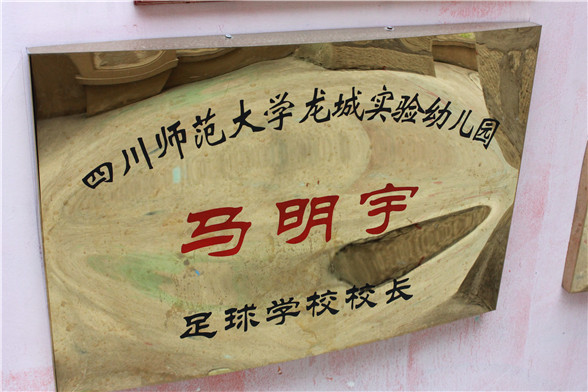 四川师范大学龙城实验幼儿园
马明宇
足球学校校长